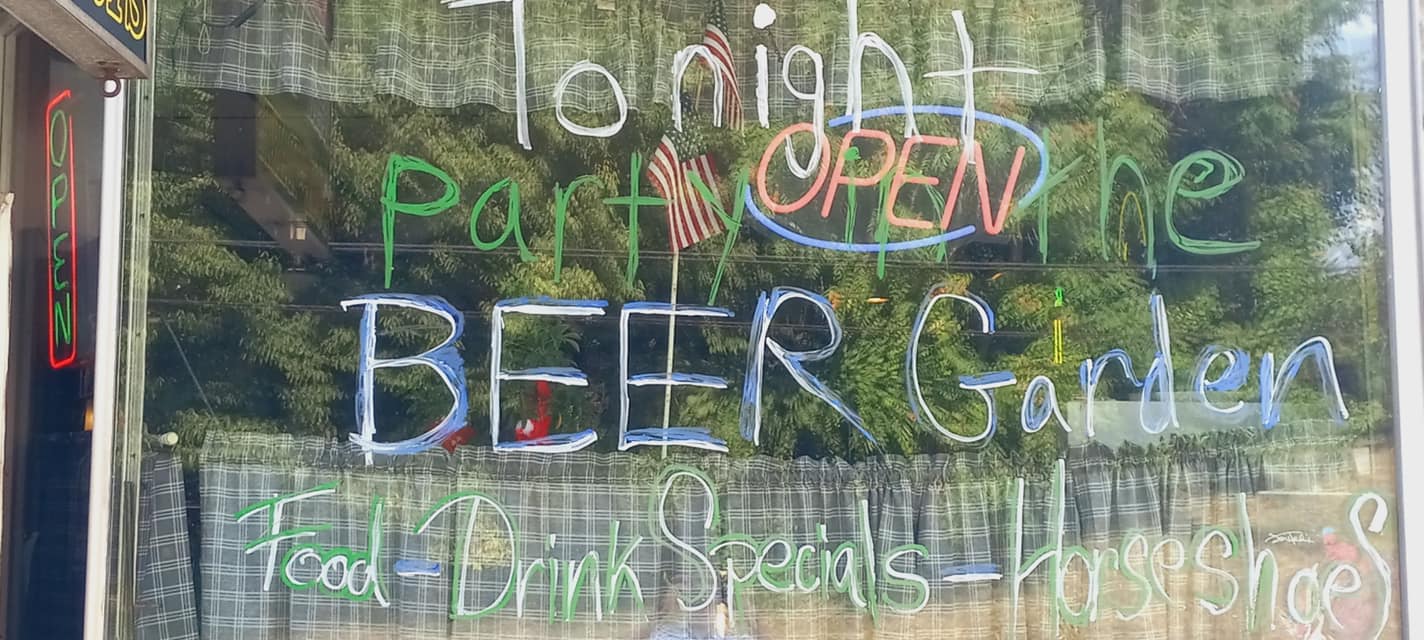 Tonight
OPEN
Party in the
OPEN
BEER Garden
Food - Drink Specials - Horseshoes